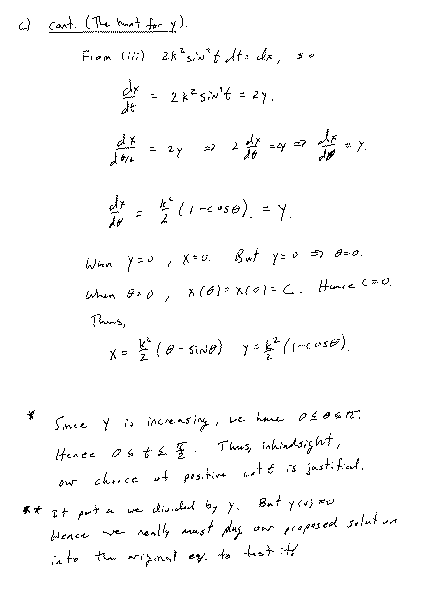 c) cont. (The hunt for y).
From (iii) 2k² sin²t dt = dx, so
dx/dt = 2k² sin²t = 2y.
dx/dθ/2 = 2y ⇒ 2 dx/dθ = 2y ⇒ dx/dθ = y.
dx/dθ = k²/2 (1-cosθ). = y.
When y=0, x=0. But y=0 ⇒ θ=0.
When θ=0, x(θ)=x(0)=C. Hence C=0.
Thus,
x = k²/2 (θ - sinθ) y = k²/2 (1-cosθ).
* Since y is increasing, we have 0≤θ≤π.
Hence 0≤t≤π/2. Thus, in hindsight,
our choice of positive cot t is justified.
** It part a we divided by y. But y(0)=0
Hence we really must plug our proposed solution
into the original eq. to test it